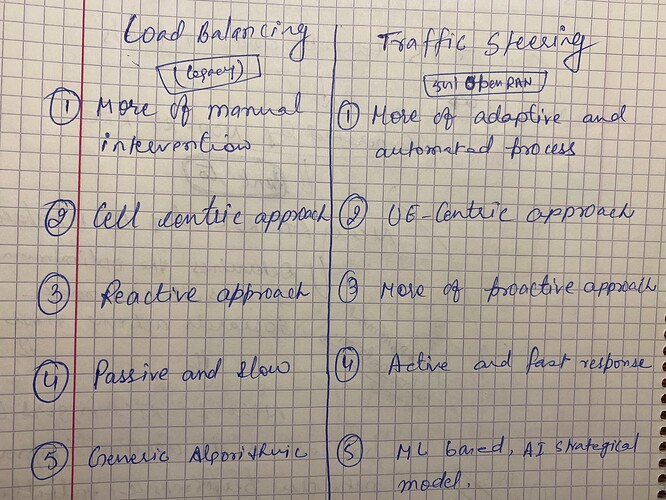 Load Balancing
(Legacy)
① More of manual
intervention
② Cell centric approach
③ Reactive approach
④ Passive and slow
⑤ Generic Algorithmic
Traffic Steering
in OpenRAN
① More of adaptive and
automated process
② UE-Centric approach
③ More of proactive approach
④ Active and fast response
⑤ ML based, AI strategical
model.